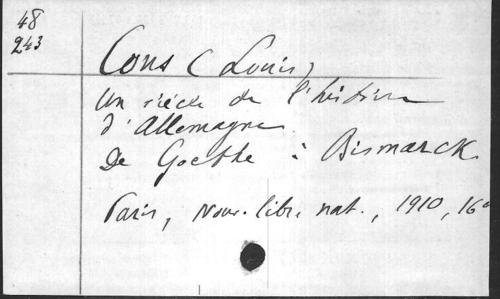 48
243
Cons (Louis)
Un siècle de l'histoire
d'Allemagne
De Goethe à Bismarck
Paris, Nouv. libr. nat., 1910, 16º